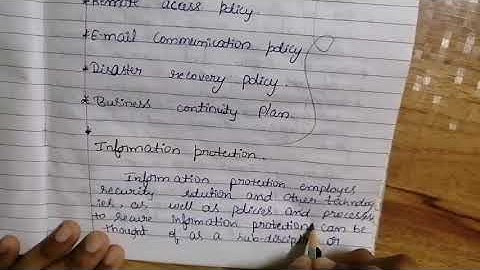 * Remote access policy
* E-mail communication policy
* Disaster recovery policy.
* Business continuity plan.
Information protection.
Information protection employes
security solution and other technolog
ies, as well as policies and processes
to secure information protection can be
thought of as a sub-discipline or